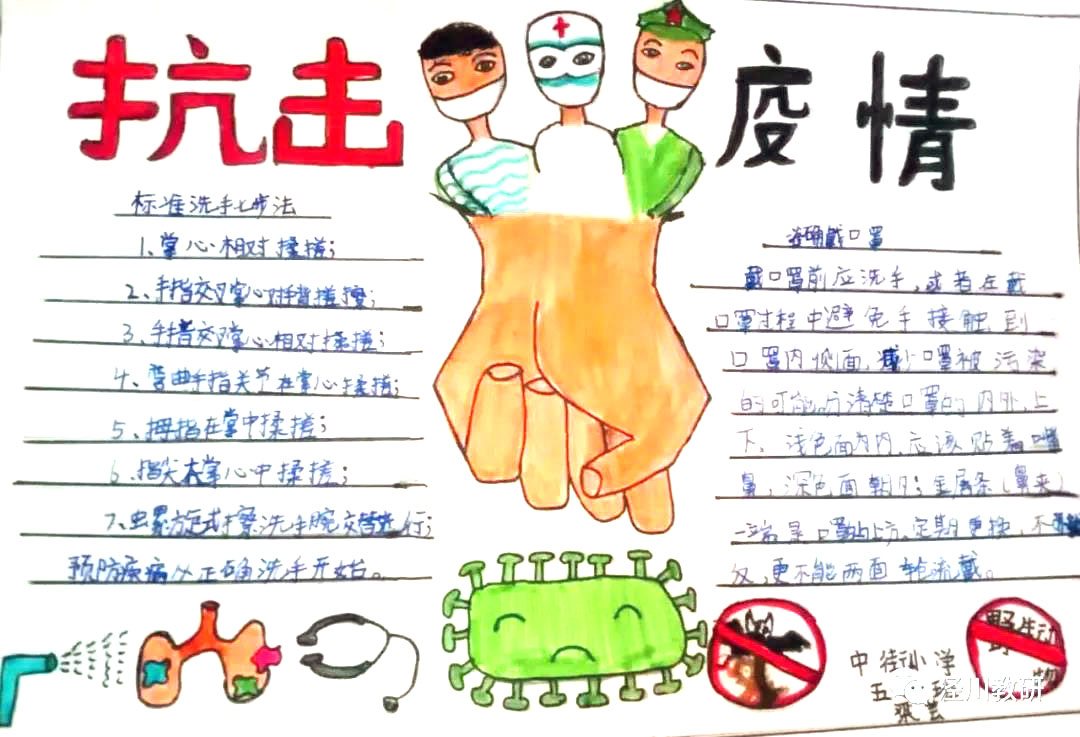 抗击疫情
标准洗手七步法
1、掌心相对揉搓;
2、手指交叉掌心对手背搓擦;
3、手指交叉掌心相对揉搓;
4、弯曲手指关节在掌心揉搓;
5、拇指在掌中揉搓;
6、指尖在掌心中揉搓;
7、螺旋式擦洗手腕交替进行;
预防疾病从正确洗手开始。
正确戴口罩
戴口罩前应洗手,或者在戴
口罩过程中避免手接触到
口罩内侧面,减少口罩被污染
的可能。分清楚口罩的内外、上
下、浅色面为内,应该贴着嘴
鼻,深色面朝外;金属条(鼻夹)
一端是口罩的上方。定期更换,不
仅,更不能两面轮流戴。
中街小学
五 班
张芸
野生动
物
泾川教研